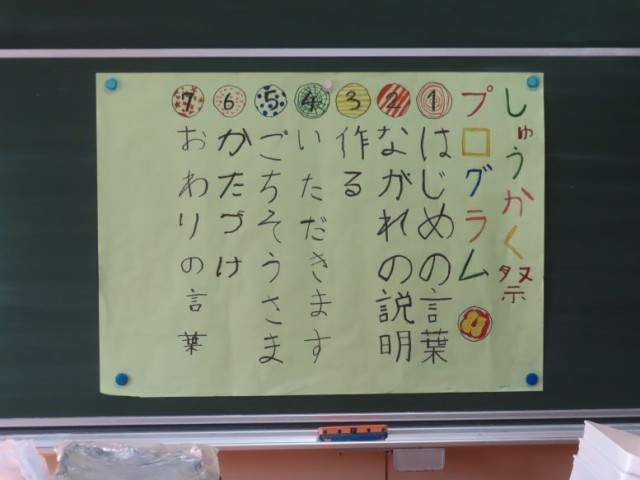 しゅうかく祭
プログラム
1 はじめの言葉
2 ながれの説明
3 作る
4 いただきます
5 ごちそうさま
6 かたづけ
7 おわりの言葉